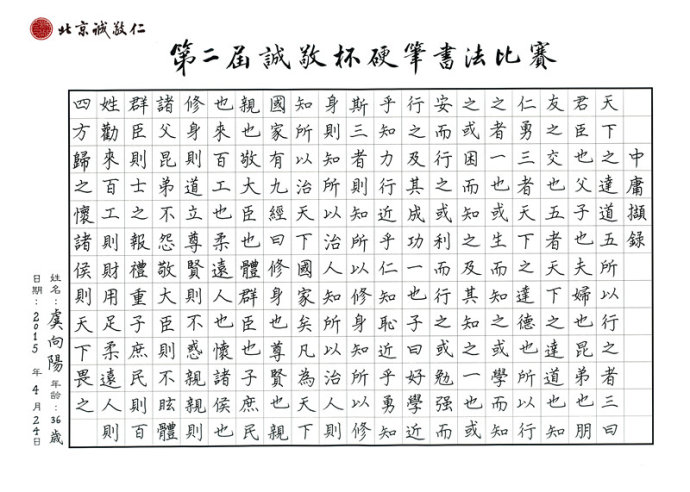 北京誠敬仁
第二届誠敬杯硬筆書法比賽
中庸擷錄
天下之達道五所以行之者三曰
君臣也父子也夫婦也昆弟也朋
友之交也五者天下之達道也知
仁勇三者天下之達德也所以行
之者一也或生而知之或學而知
之或困而知之及其知之一也或
安而行之或利而行之或勉强而
行之及其成功一也子曰好學近
乎知力行近乎仁知恥近乎勇知
斯三者則知所以修身知所以修
身則知所以治人知所以治人則
知所以治天下國家矣凡為天下
國家有九經曰修身也尊賢也親
親也敬大臣也體群臣也子庶民
也來百工也柔遠人也懷諸侯也
修身則道立尊賢則不惑親親則
諸父昆弟不怨敬大臣則不眩體
群臣則士之報禮重子庶民則百
姓勸來百工則財用足柔遠人則
四方歸之懷諸侯則天下畏之
姓名：虞向陽 年龄：36歲
日期：2015 年 4 月 24 日